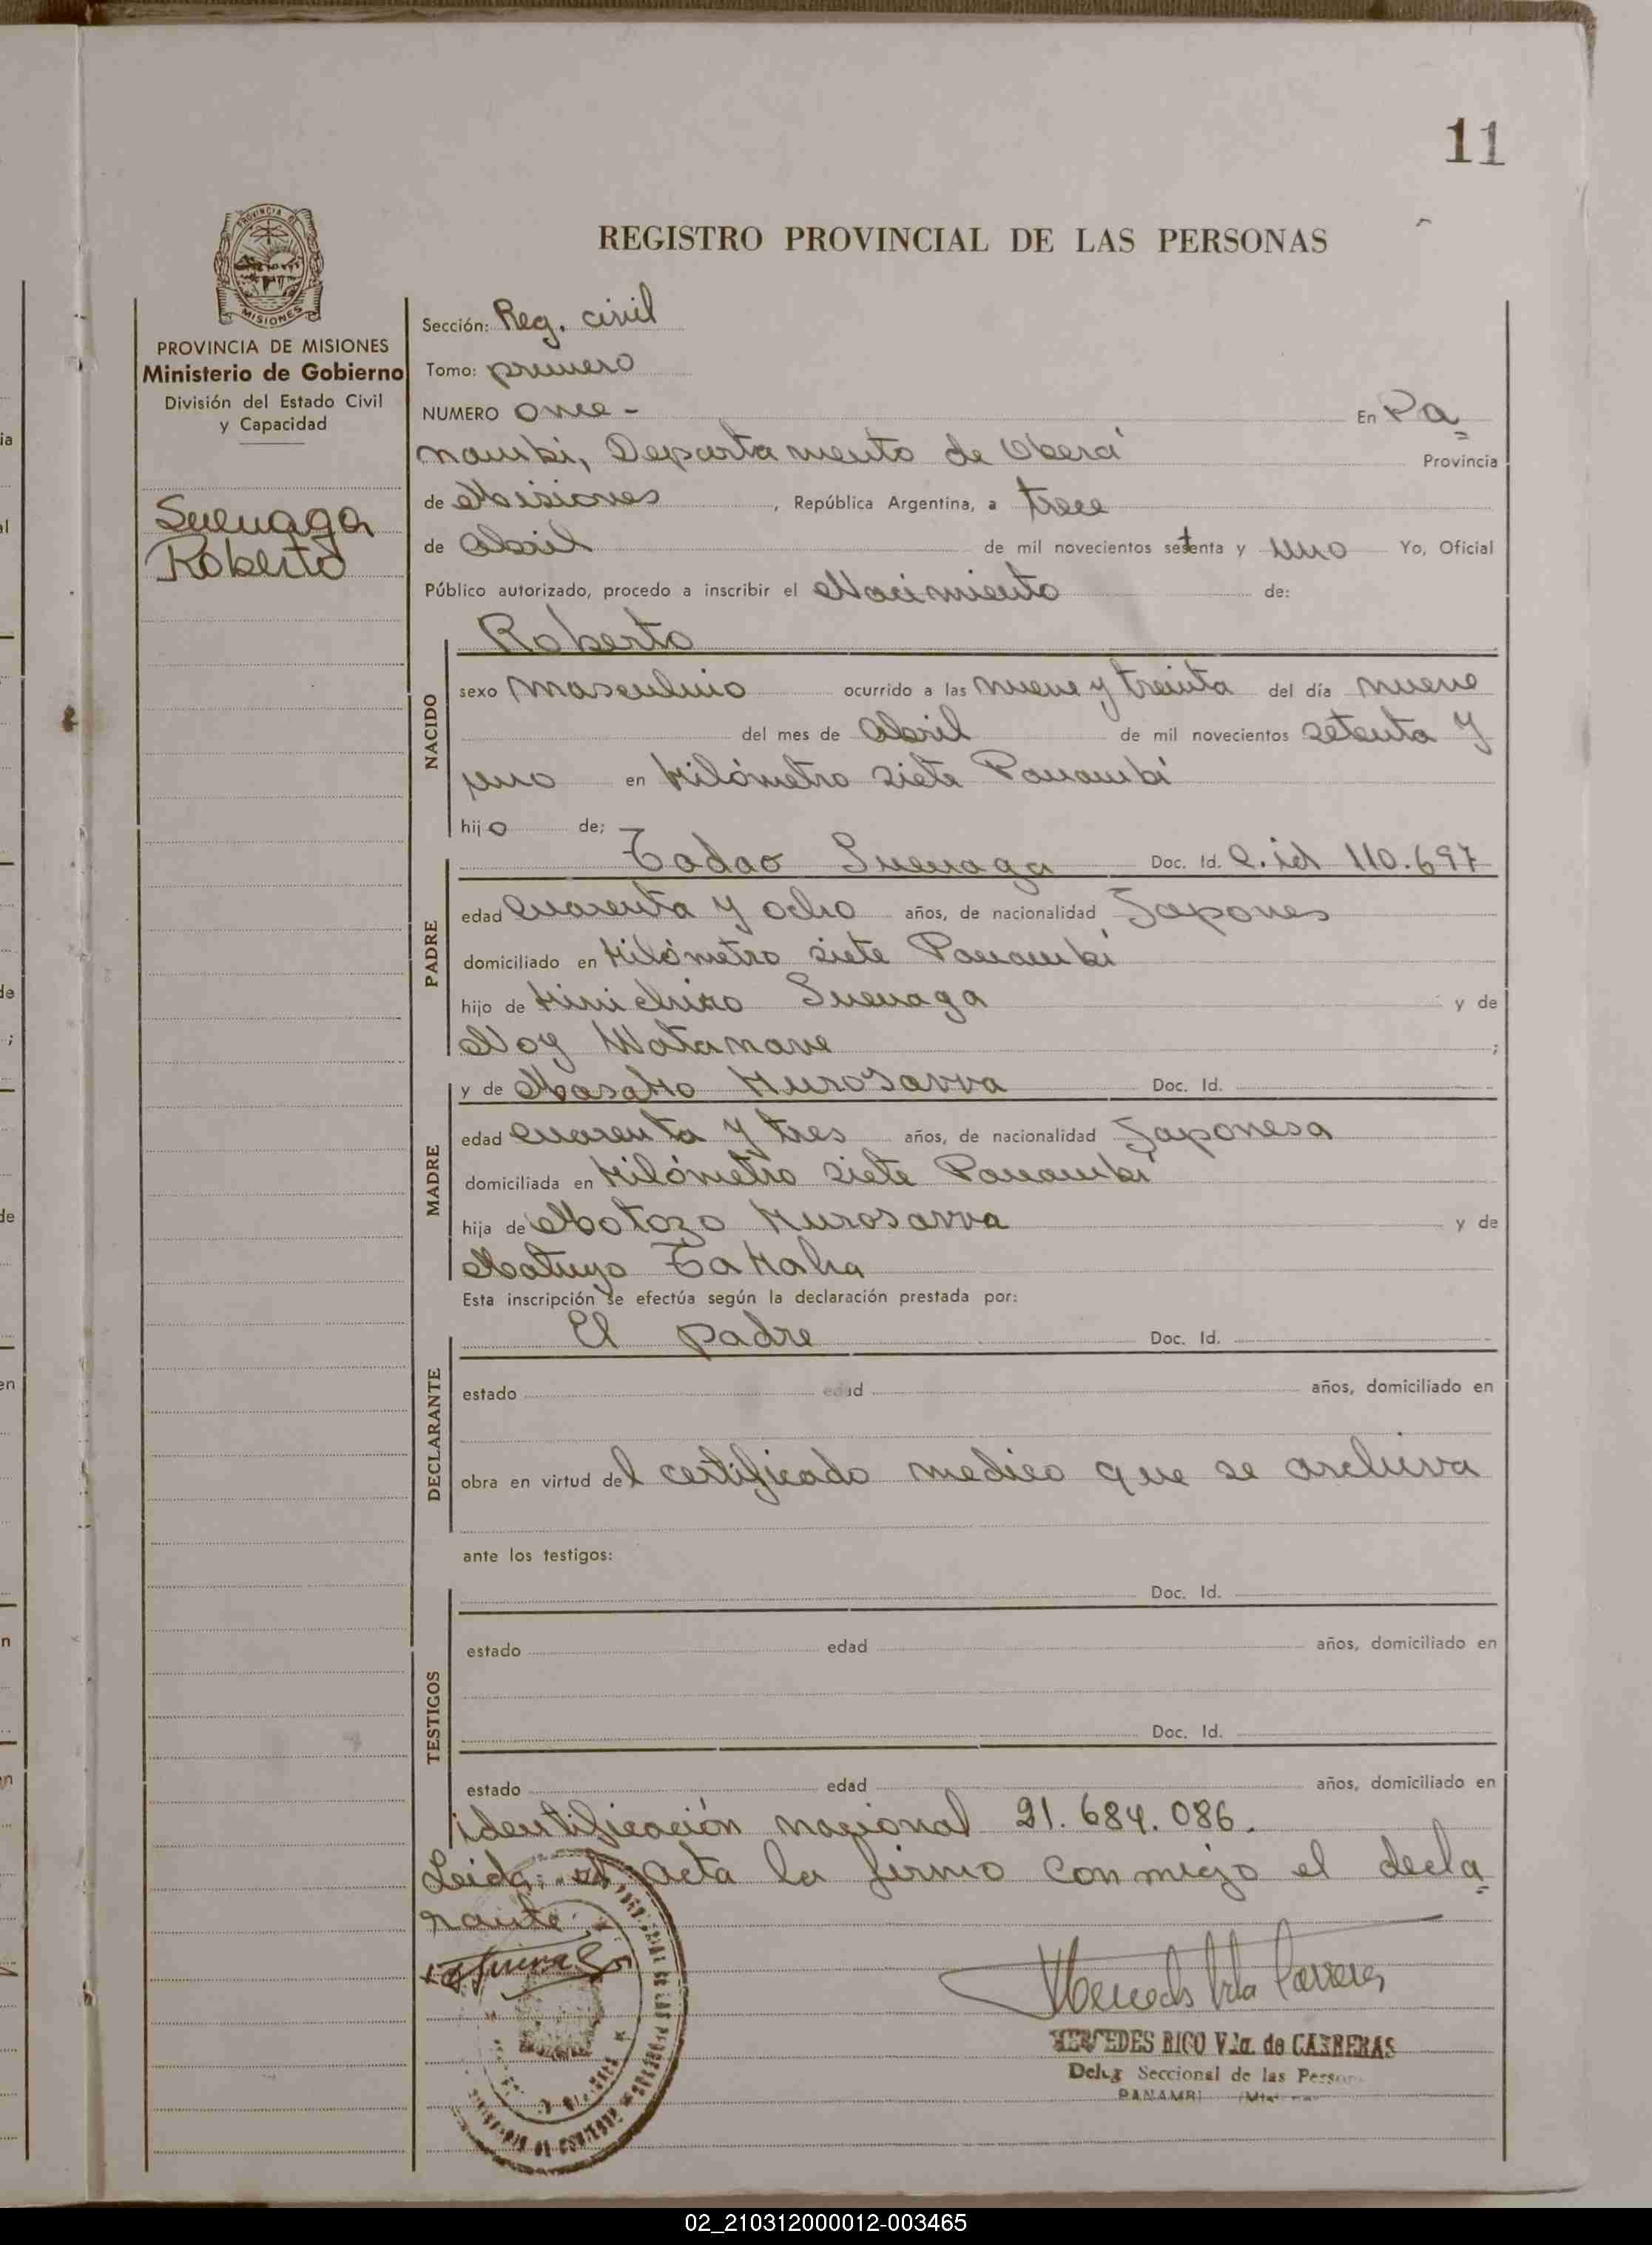 11
REGISTRO PROVINCIAL DE LAS PERSONAS
PROVINCIA DE
MISIONES
PROVINCIA DE MISIONES
Ministerio de Gobierno
División del Estado Civil
y Capacidad
Suenaga
Roberto
Sección: Reg. civil
Tomo: primero
NUMERO once - En Pa
nambi, Departamento de Oberá Provincia
de Misiones, República Argentina, a trece
de Abril de mil novecientos setenta y uno Yo, Oficial
Público autorizado, procedo a inscribir el Nacimiento de:
Roberto
NACIDO
sexo masculino ocurrido a las nueve y treinta del día nueve
del mes de Abril de mil novecientos setenta y
uno en Kilómetro siete Panambí
hijo de;
PADRE
Tadao Suenaga Doc. Id. C. id 110.697
edad cuarenta y ocho años, de nacionalidad Japones
domiciliado en Kilómetro siete Panambí
hijo de Kinichiro Suenaga y de
Noy Watanave ;
MADRE
y de Masako Kurosawa Doc. Id.
edad cuarenta y tres años, de nacionalidad Japonesa
domiciliada en Kilómetro siete Panambí
hija de Motozo Kurosawa y de
Matuyo Takaha
Esta inscripción se efectúa según la declaración prestada por:
DECLARANTE
El padre Doc. Id.
estado edad años, domiciliado en
obra en virtud del certificado medico que se archiva
ante los testigos:
TESTIGOS
Doc. Id.
estado edad años, domiciliado en
Doc. Id.
estado edad años, domiciliado en
identificación nacional 21.684.086.
Leida el acta la firma conmigo el decla
rante
MERCEDES RICO Vda. de CARRERAS
Deleg Seccional de las Person
PANAMBI
02_210312000012-003465